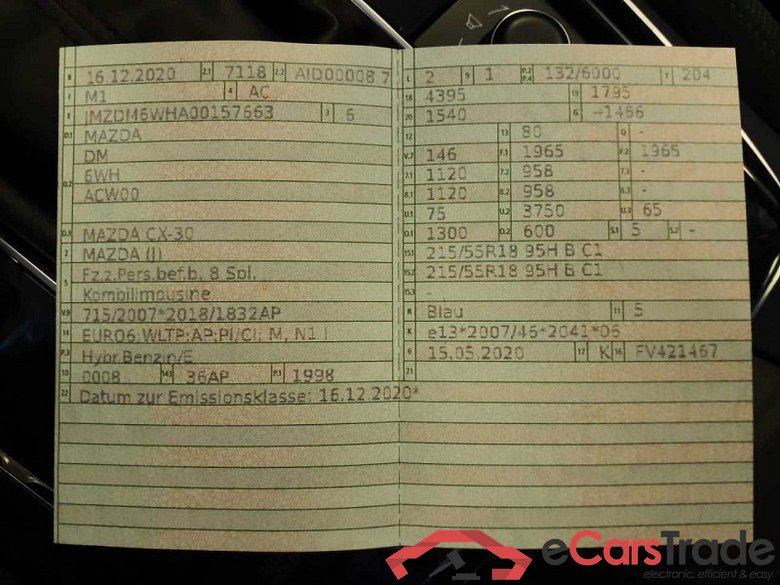 B 16.12.2020 2.1 7118 2.2 AID00008 7
J M1 4 AC
E JMZDM6WHA00157663 3 6
D.1 MAZDA
D.2 DM
6WH
ACW00
D.3 MAZDA CX-30
2 MAZDA (J)
5 Fz.z.Pers.bef.b. 8 Spl.
Kombilimousine
V.9 715/2007*2018/1832AP
14 EURO6;WLTP;AP;PI/CI; M, N1 I
P.3 Hybr.Benzin/E
10 0008 14.1 36AP P.1 1998
22 Datum zur Emissionsklasse: 16.12.2020*
L 2 9 1 P.2 P.4 132/6000 T 204
18 4395 19 1795
20 1540 G --1466
12 13 80 Q -
V.7 146 F.1 1965 F.2 1965
7.1 1120 7.2 958 7.3 -
8.1 1120 8.2 958 8.3 -
U.1 75 U.2 3750 U.3 65
O.1 1300 O.2 600 S.1 5 S.2 -
15.1 215/55R18 95H B C1
15.2 215/55R18 95H B C1
15.3 -
R Blau 11 5
K e13*2007/46*2041*06
6 15.05.2020 17 K 16 FV421467
21
eCarsTrade
electronic, efficient & easy